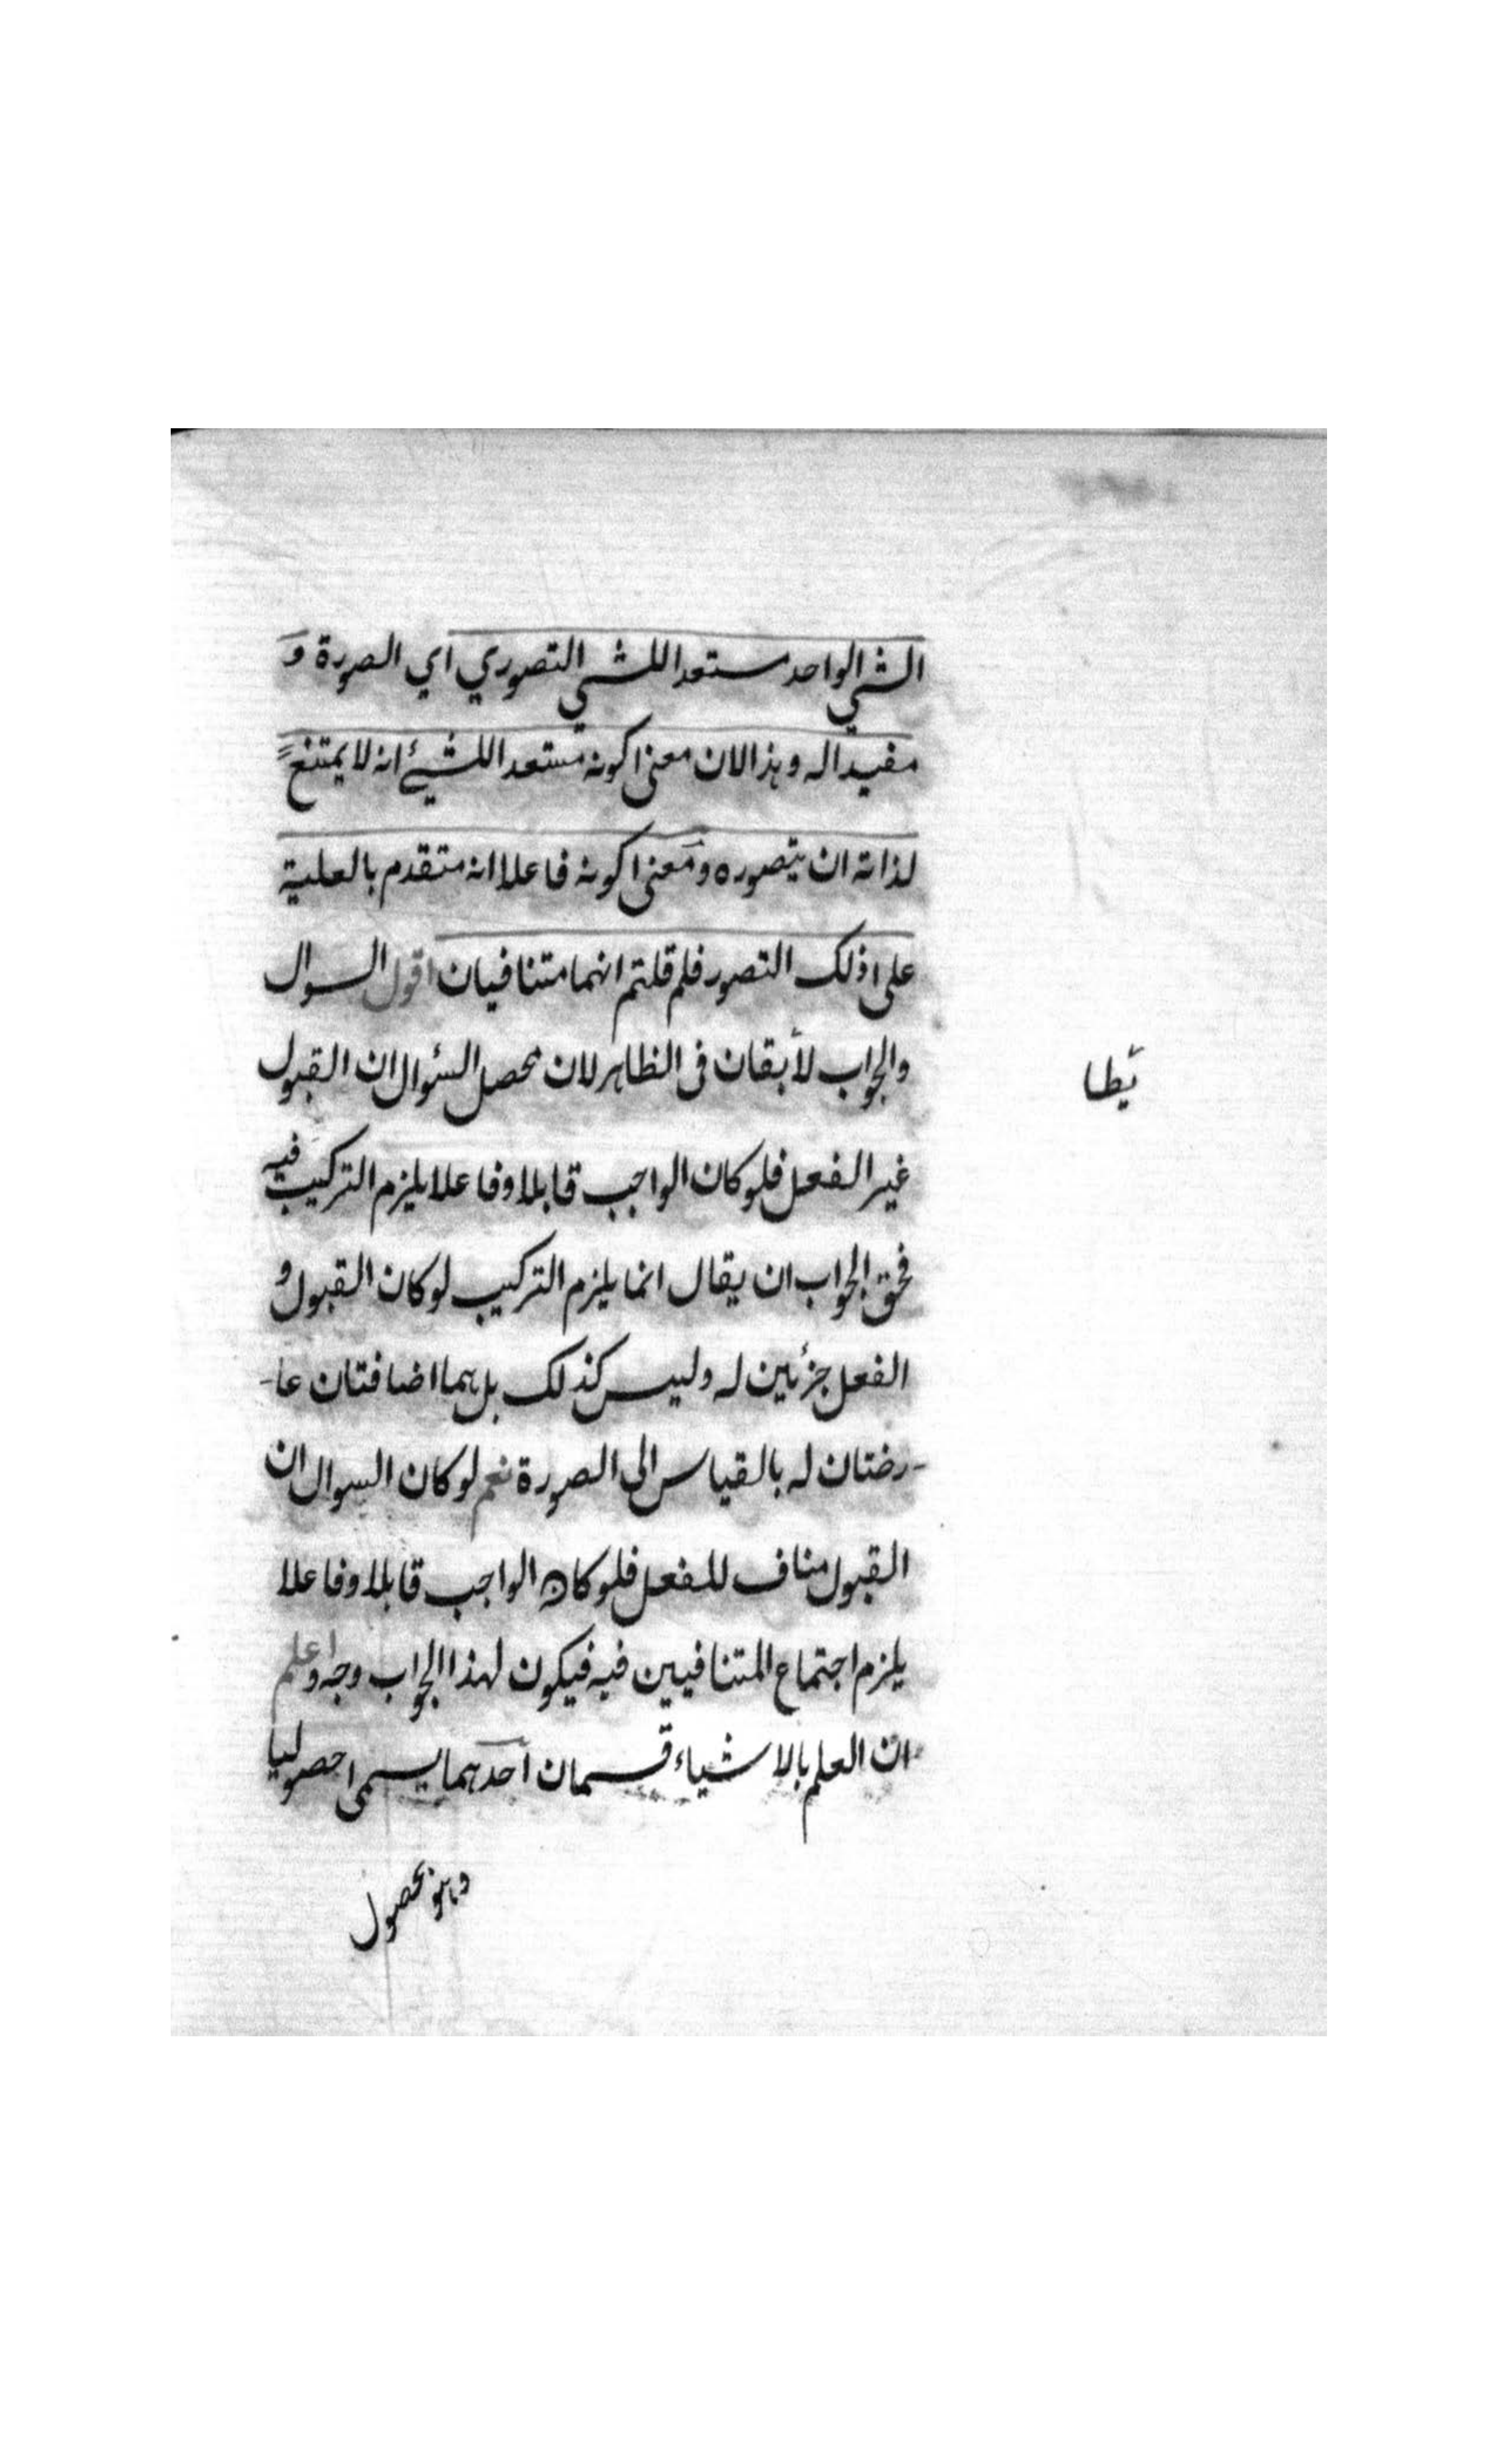 الشي الواحد مستعدا للشي التصوري اي الصورة و
مفيدا له وهذا لان معنى كونه مستعدا للشيئ انه لا يمتنع
لذاته ان يتصوره ومعنى كونه فاعلا انه متقدم بالعلية
على ذلك التصور فلم قلتم انهما متنافيان اقول السوال
والجواب لا بقان فى الظاهر لان محصل السئوال ان القبول
يطا
غير الفعل فلو كان الواجب قابلا وفاعلا يلزم التركيب فيه
فحق الجواب ان يقال انما يلزم التركيب لو كان القبول و
الفعل جزئين له وليس كذلك بل هما اضافتان عا-
-رضتان له بالقياس الى الصورة نعم لو كان السوال ان
القبول مناف للفعل فلو كان الواجب قابلا وفاعلا
يلزم اجتماع المتنافيين فيه فيكون لهذا الجواب وجه واعلم
ان العلم بالاشياء قسمان احدهما يسمى حصوليا
وهو بحصول